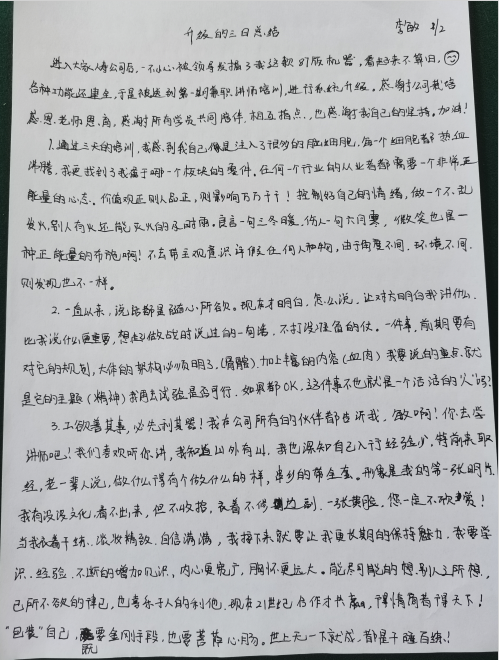 升级的三日总结
李敏 2/2
进入大家人寿公司后,一不小心被领导发掘了我这款87版机器,看起来不算旧,
各种功能还建全,于是被送到第一期兼职讲师培训,进行系统升级。感谢公司栽培
感恩老师恩商,感谢所有学员共同陪伴、相互指点,也感谢我自己的坚持。加油!
1.通过三天的培训,我感到我自己像是注入了很多的脑细胞,每一个细胞都热血
沸腾,我更找到了我属于哪一个板块的零件,任何一个行业的从业者都需要一个非常正
能量的心态。价值观正则人品正,则影响万万千千!控制好自己的情绪,做一个不乱
发火,别人有火还能灭火的及时雨。良言一句三冬暖,伤人一句六月寒,微笑也是一
种正能量的布施啊!不去带主观意识评价任何人和物,由于角度不同,环境不同,
则发现也不一样。
2.一直以来,说话都是随心所欲。现在才明白,怎么说,让对方明白我讲什么,
比我说什么更重要,想起做战时说过的一句话,不打没准备的仗。一件事,前期要有
对它的规划,大体的架构必须明了,(骨骼),加上丰富的内容(血肉)我要说的重点,就
是它的主题(精神)我再去试验是否可行,如果都OK,这件事不也就是一个活活的“人”吗?
3.工欲善其事,必先利其器!我在公司所有的伙伴都告诉我,敏啊!你去当
讲师吧!我们喜欢听你讲,我知道山外有山,我也深知自己入行经验少,特前来取
经,老一辈人说,做什么得有个做什么的样,串乡的带全套。形象是我的第一张明片
我有没没文化,看不出来,但不收拾,衣着不修边副,一张黄脸,您一定不欣赏!
当我衣着干练,淡妆精致,自信满满,我接下来就要让我更长期的保持魅力,我要学
识、经验,不断的增加见识,内心更宽广,胸怀更远大。能尽可能的想别人之所想,
己所不欲的律己,也喜乐于人的利他,现在21世纪合作才共赢,得情商者得天下!
“包装”自己,既要金刚手段,也要菩萨心肠。世上无一下就成,都是千锤百练!